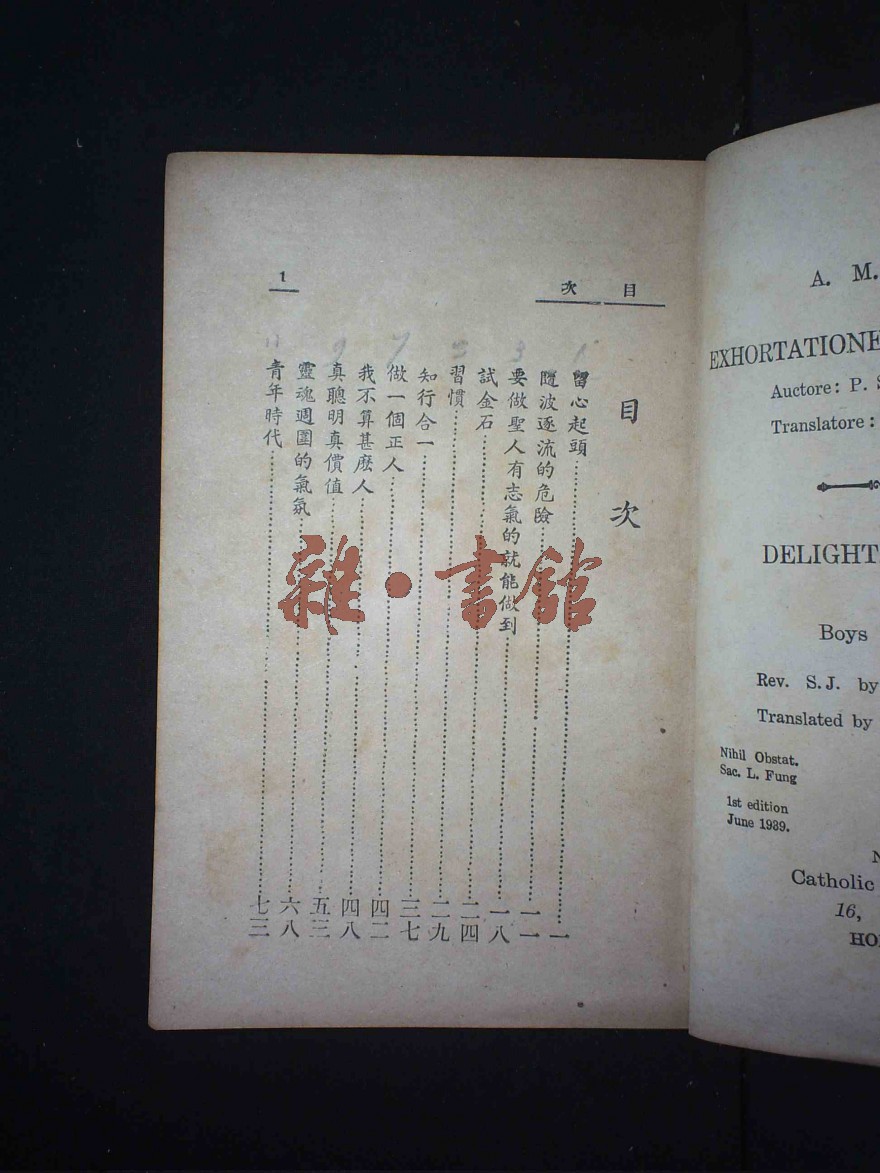 目次
1
目次
留心起頭 一
隨波逐流的危險 一一
要做聖人有志氣的就能做到 一八
試金石 二四
習慣 二九
知行合一 三七
做一個正人 四二
我不算甚麼人 四八
真聰明真價值 五三
靈魂週圍的氣氛 六八
青年時代 七三
1
3
7
9
11
雜·書館
A. M.
EXHORTATIONE
Auctore: P. S
Translatore:
DELIGHT
Boys
Rev. S.J. by
Translated by
Nihil Obstat.
Sac. L. Fung
1st edition
June 1939.
N
Catholic
16,
HO